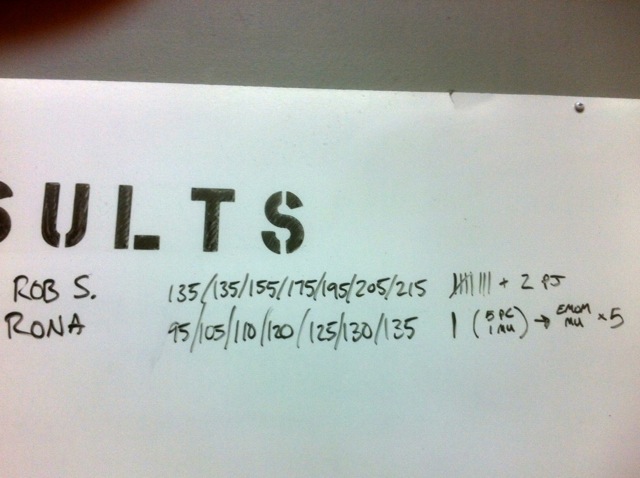 SULTS
ROB S. 135/135/155/175/195/205/215 𝍸 ||| + 2 PJ
RONA 95/105/110/120/125/130/135 | (5 PC 1 MU) → EMOM MU x5